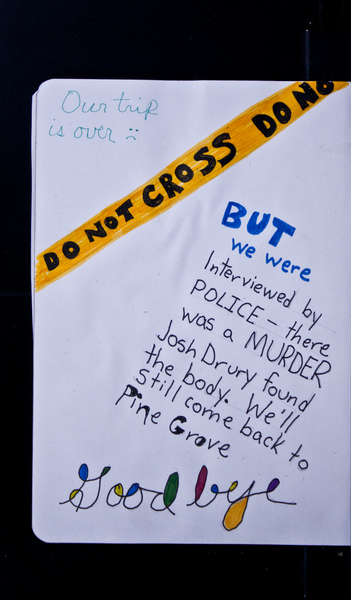 Our trip
is over :(
DO NOT CROSS DO NO
BUT
we were
Interviewed by
POLICE - there
was a MURDER
Josh Drury found
the body. We'll
still come back to
Pine Grove
Goodbye